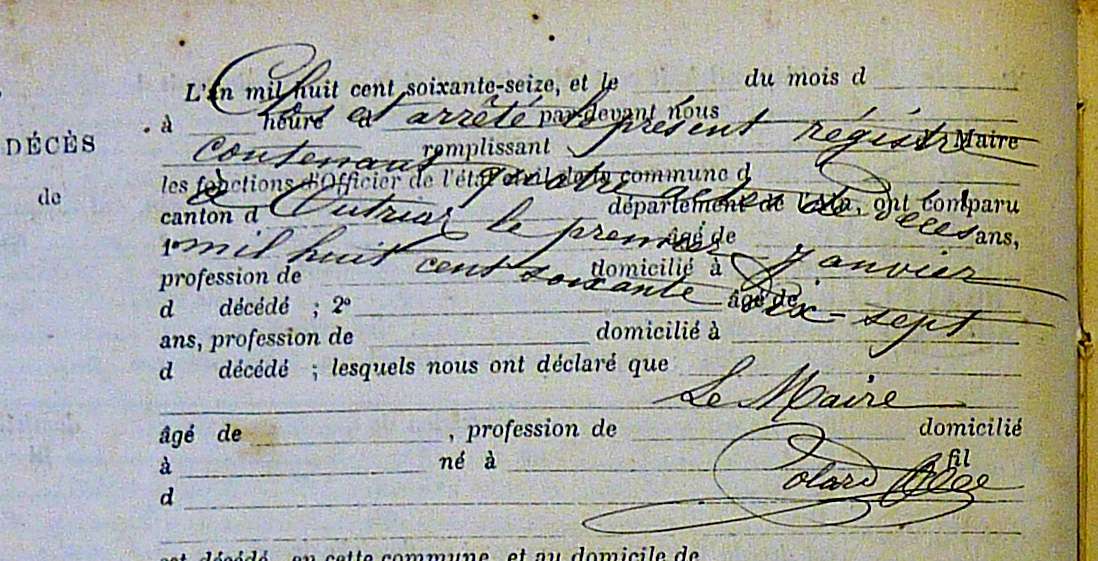 L'an mil huit cent soixante-seize, et le du mois d
Clos et arrêté le présent régistre
à heure d par-devant nous
Maire
contenant quatre actes de Décès
remplissant
les fonctions d'Officier de l'état civil de la commune d
à Outriaz le premier Janvier
canton d département de l'Ain, ont comparu
1º âgé de ans,
mil huit cent soixante Dix-sept.
profession de domicilié à
d décédé ; 2º âgé de
DÉCÈS
de
ans, profession de domicilié à
d décédé ; lesquels nous ont déclaré que
Le Maire
âgé de , profession de domicilié
à né à fil
d
est décédé, en cette commune, et au domicile de